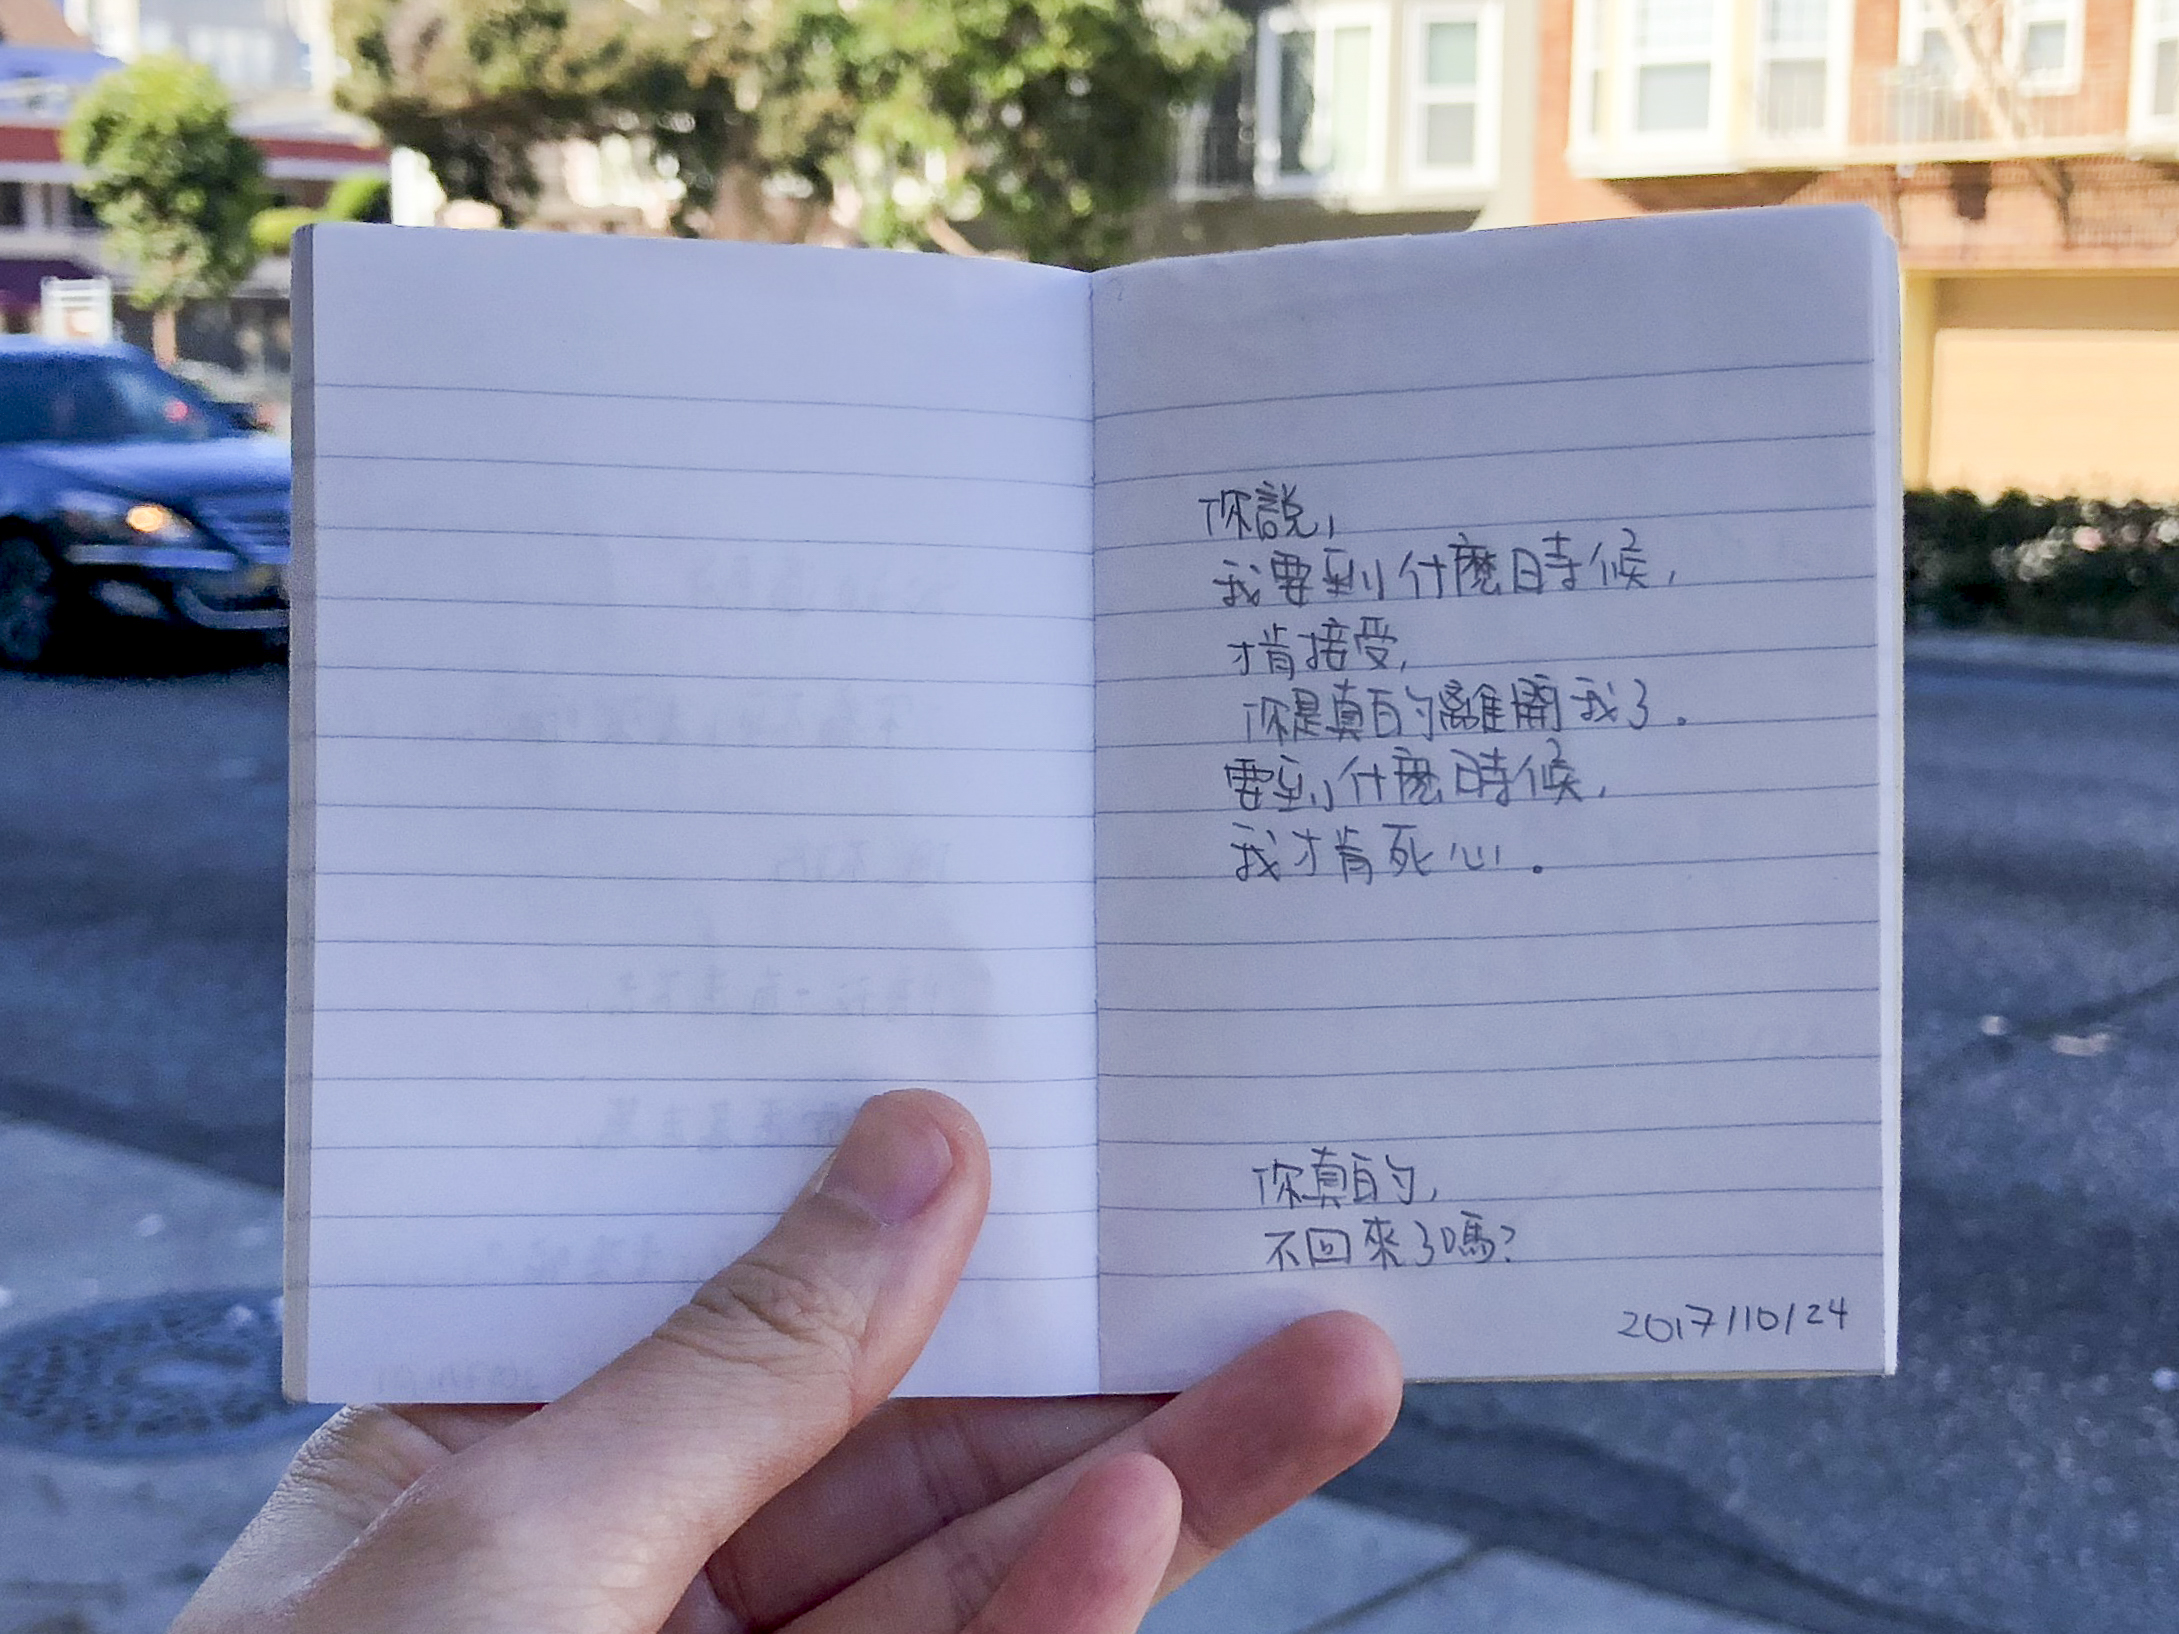 你說,
我要到什麼時候,
才肯接受,
你是真的離開我了。
要到什麼時候,
我才肯死心。
你真的,
不回來了嗎?
2017/10/24